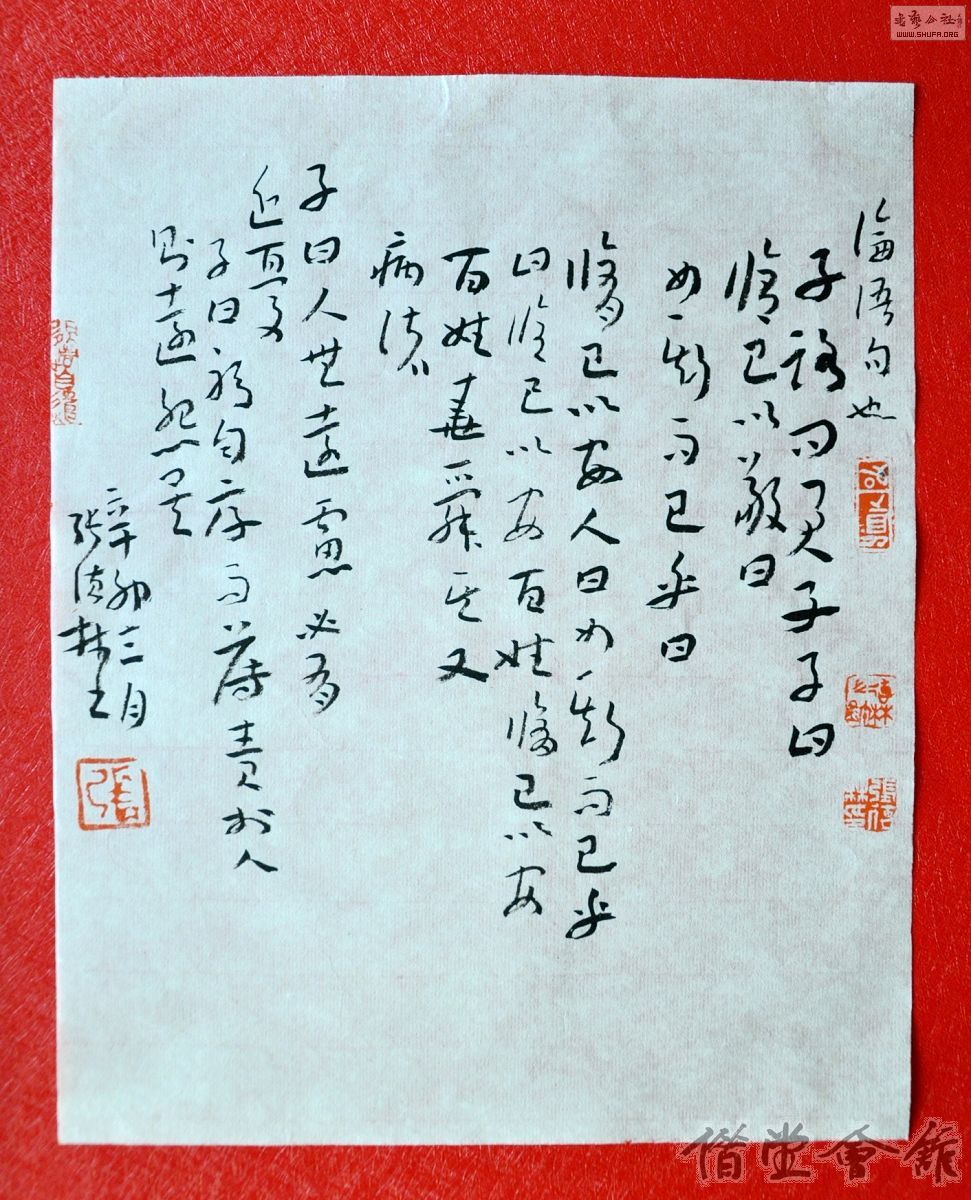 論語句也
子路問君子子曰
脩己以敬曰
如斯而已乎曰
脩己以安人曰如斯而已乎
曰脩己以安百姓脩己以安
百姓堯舜其又
病諸
子曰人無遠慮必有
近憂
子曰躬自厚而薄責於人
則遠怨矣
辛卯三月
張德林
張
書藝公社
WWW.SHUFA.ORG
偕堂會館